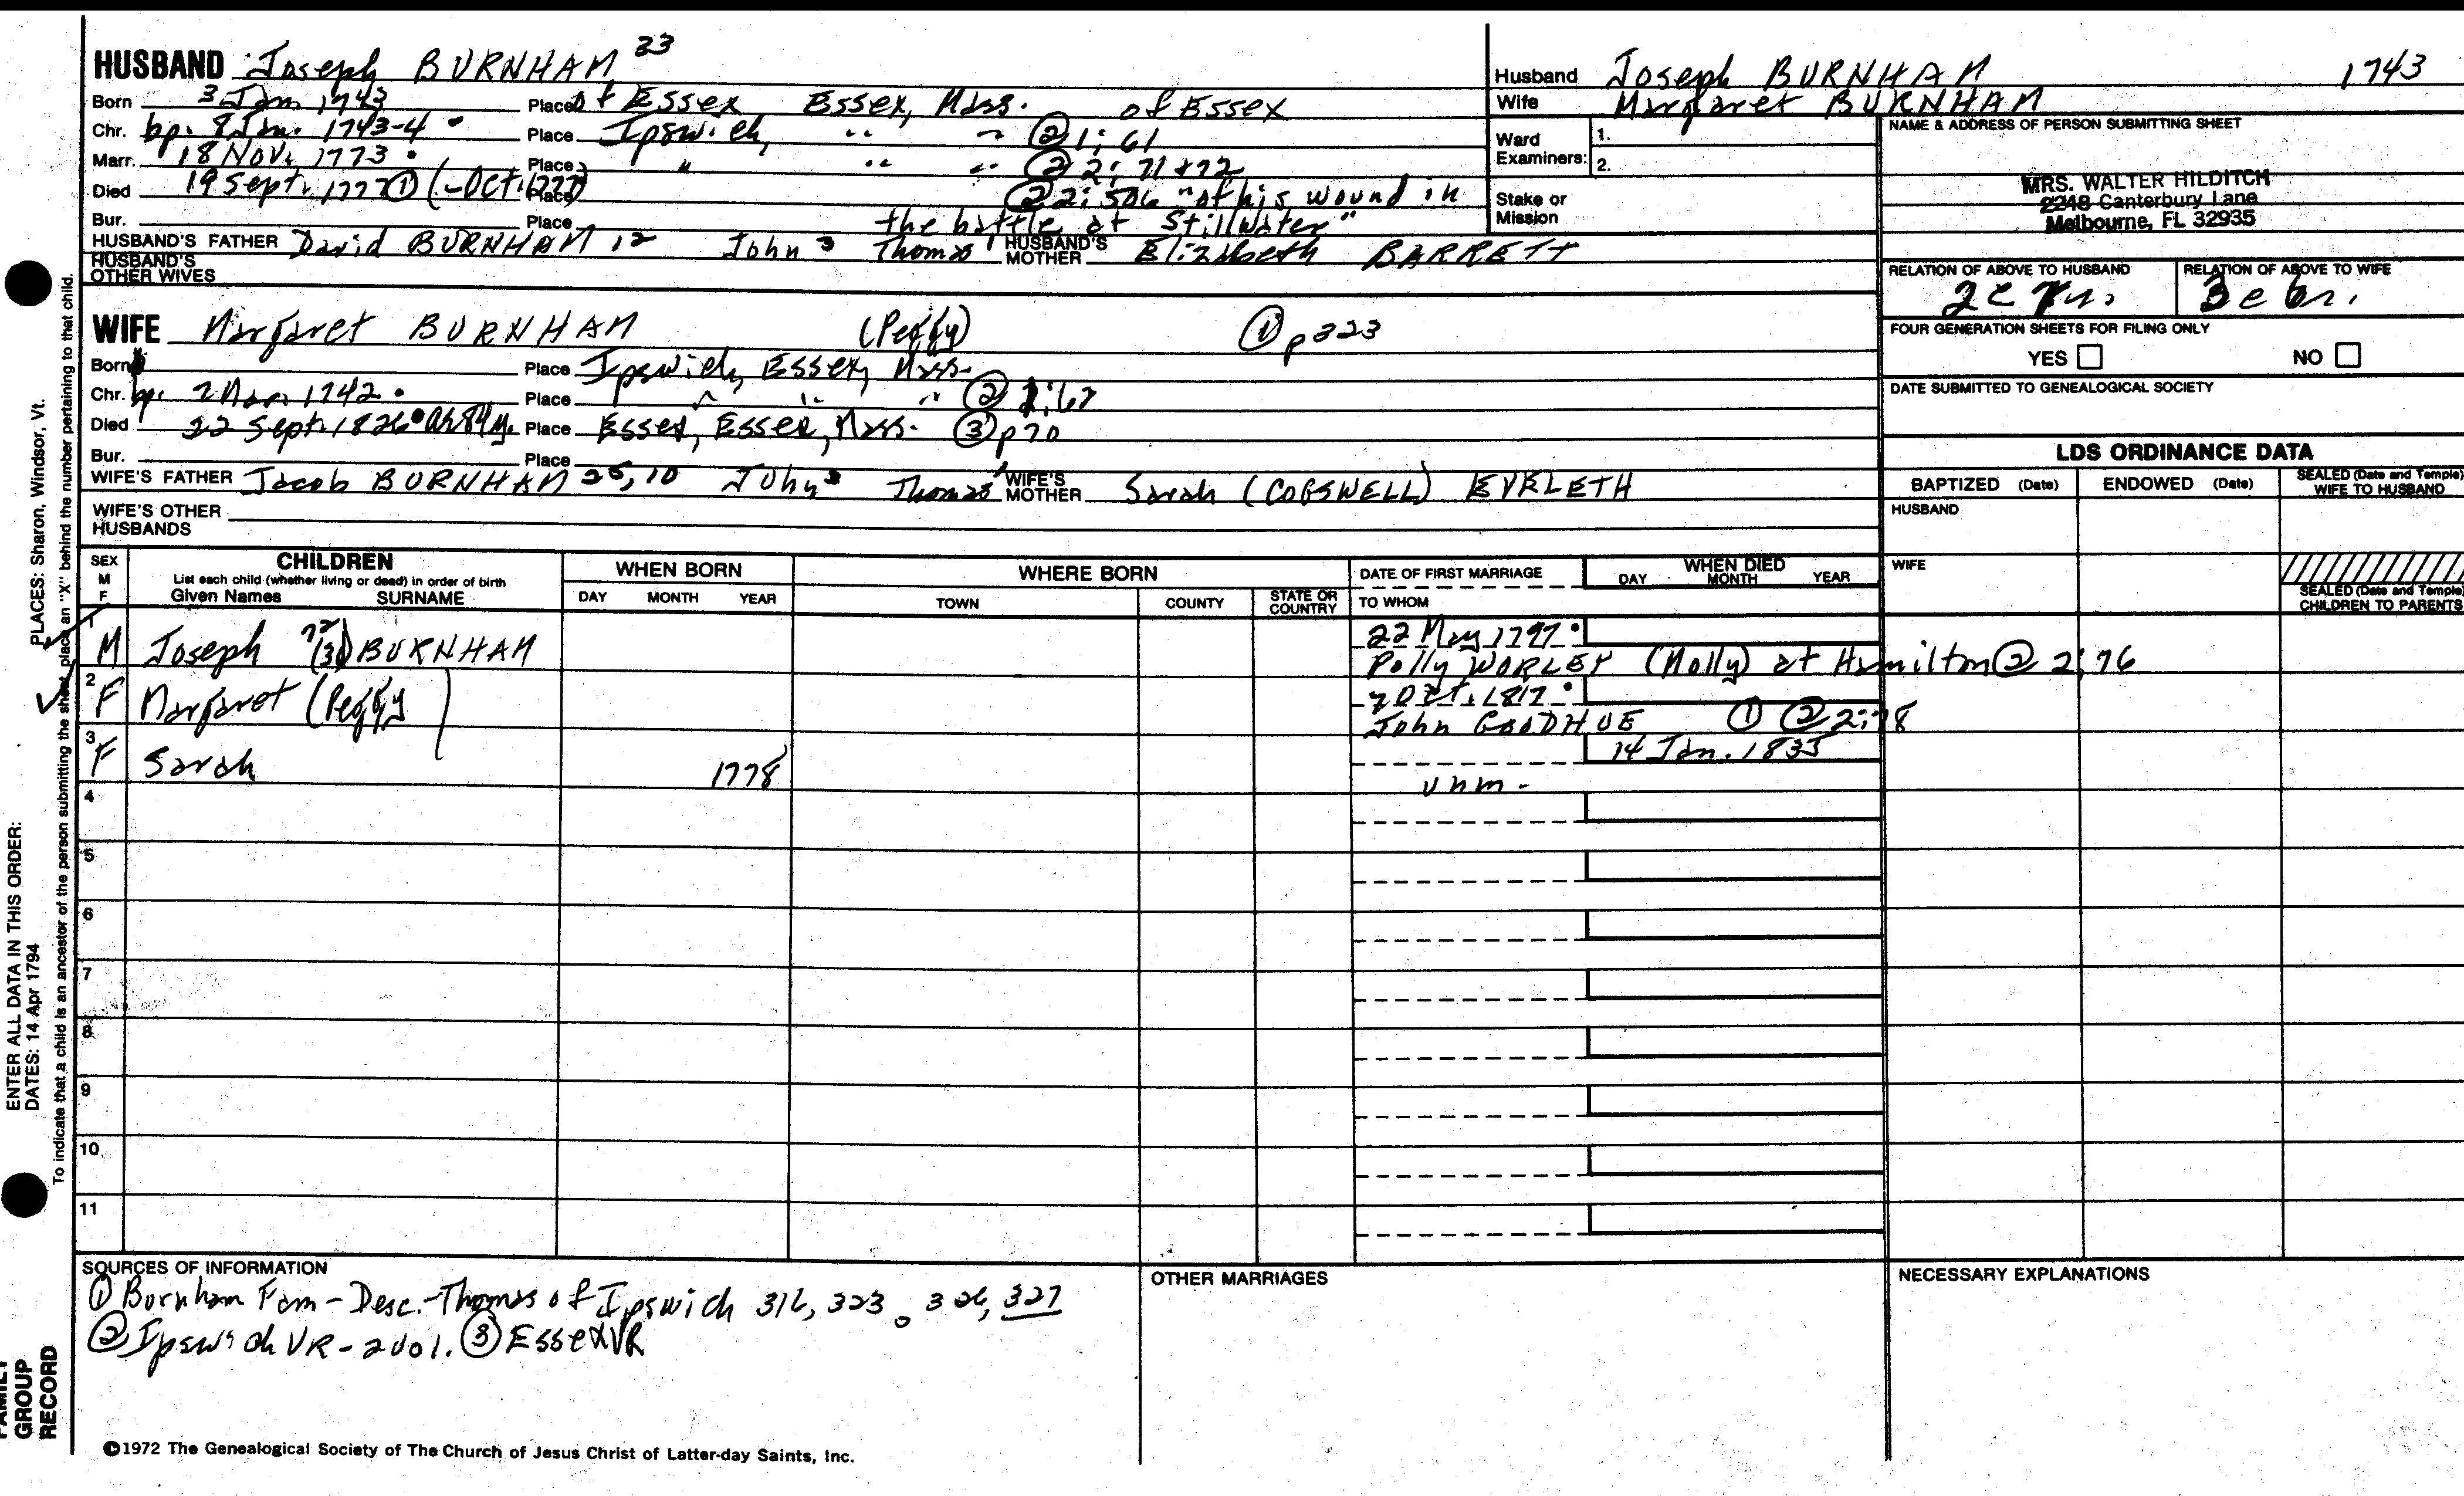 HUSBAND Joseph BURNHAM 33
Born 3 Jan 1743 Place of Essex Essex, Mass. of Essex
Chr. bp. 8 Jan. 1743-4 Place Ipswich, " " ② 1; 61
Marr. 18 Nov. 1773 Place " " " ② 2; 71+72
Died 19 Sept. 1777 ① (-Oct. 1777) Place ② 2; 506 "of his wound in
Bur. Place the battle at Stillwater"
HUSBAND'S FATHER David BURNHAM 12 John 3 Thomas 1 HUSBAND'S MOTHER Elizabeth BARRETT
HUSBAND'S OTHER WIVES
Husband Joseph BURNHAM 1743
Wife Margaret BURNHAM
Ward Examiners: 1.
2.
Stake or Mission
NAME & ADDRESS OF PERSON SUBMITTING SHEET
MRS. WALTER HILDITCH
2248 Canterbury Lane
Melbourne, FL 32935
RELATION OF ABOVE TO HUSBAND RELATION OF ABOVE TO WIFE
FOUR GENERATION SHEETS FOR FILING ONLY
YES NO
DATE SUBMITTED TO GENEALOGICAL SOCIETY
WIFE Margaret BURNHAM (Peggy) ① p 323
Born Place Ipswich, Essex, Mass.
Chr. bp. 7 Mar. 1742 Place " " " ② 1; 67
Died 22 Sept. 1826 ae 84 y. Place Essex, Essex, Mass. ③ p 70
Bur. Place
WIFE'S FATHER Jacob BURNHAM 25, 10 John 3 Thomas 1 WIFE'S MOTHER Sarah (COGSWELL) EVELETH
WIFE'S OTHER HUSBANDS
LDS ORDINANCE DATA
BAPTIZED (Date) ENDOWED (Date) SEALED (Date and Temple) WIFE TO HUSBAND
HUSBAND
WIFE
SEALED (Date and Temple) CHILDREN TO PARENTS
SEX M F CHILDREN WHEN BORN WHERE BORN DATE OF FIRST MARRIAGE WHEN DIED
List each child (whether living or dead) in order of birth
Given Names SURNAME DAY MONTH YEAR TOWN COUNTY STATE OR COUNTRY TO WHOM DAY MONTH YEAR
1 M Joseph 72 (3) BURNHAM 22 May 1797
Polly WORLEY (Molly) at Hamilton ② 2; 76
2 F Margaret (Peggy) 7 Oct. 1817
John GOODHUE ① ② 2; 78
3 F Sarah 1778 14 Jan. 1835
unm-
4
5
6
7
8
9
10
11
SOURCES OF INFORMATION
① Burnham Fam - Desc. - Thomas of Ipswich 316, 323, 326, 327
② Ipswich VR - 2 vol. ③ Essex VR
OTHER MARRIAGES
NECESSARY EXPLANATIONS
©1972 The Genealogical Society of The Church of Jesus Christ of Latter-day Saints, Inc.
PLACES: Sharon, Windsor, Vt.
To indicate that a child is an ancestor of the person submitting the sheet, place an "X" behind the number pertaining to that child.
ENTER ALL DATA IN THIS ORDER:
DATES: 14 Apr 1794
FAMILY
GROUP
RECORD